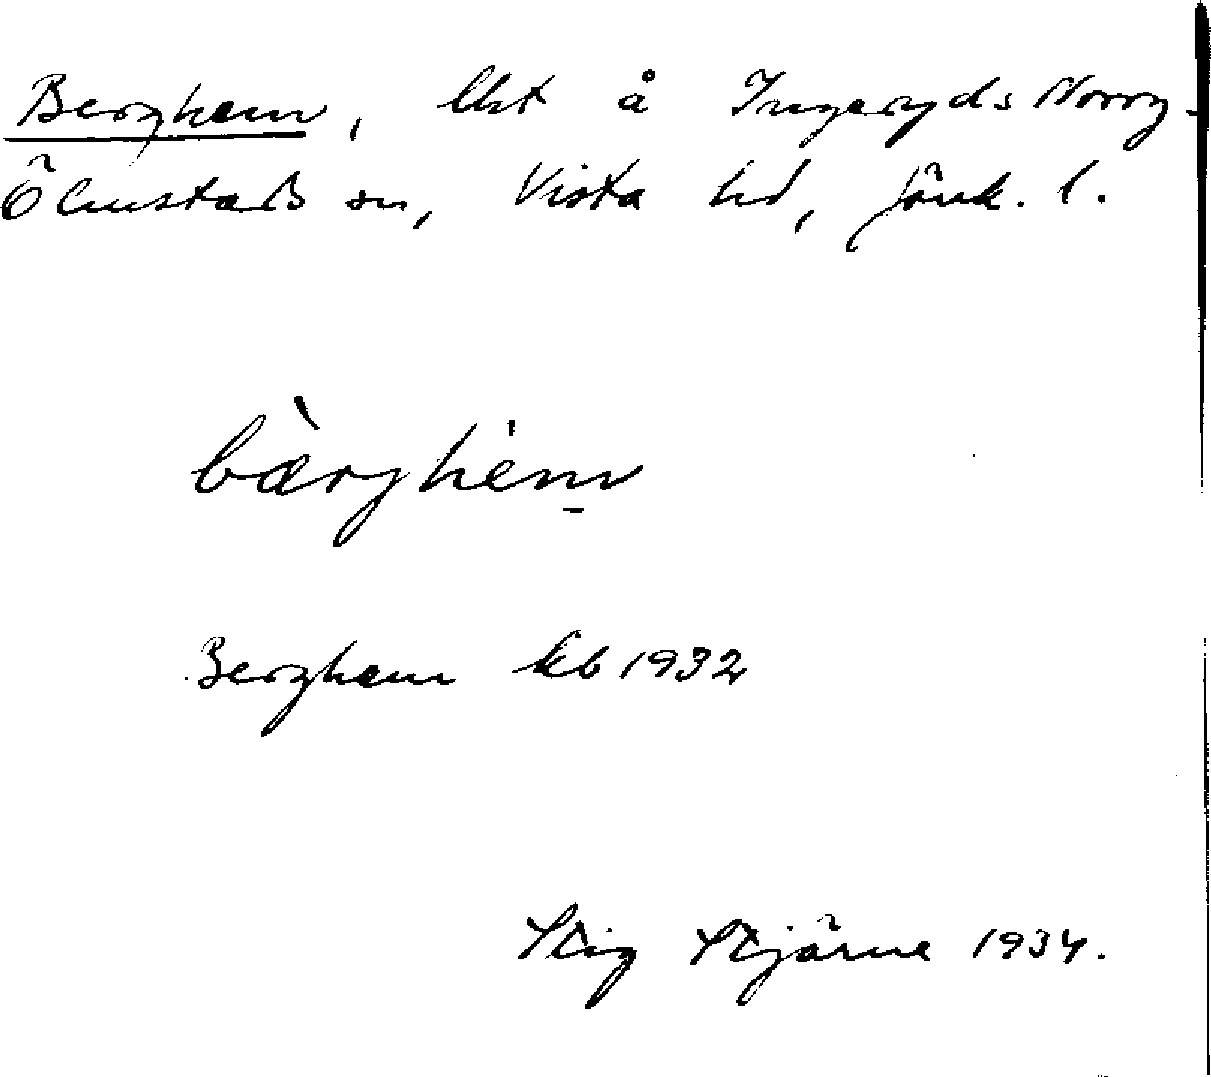 Berghem, lht å Ingeryds Norrg.
Ölmstads sn, Vista hd, Jönk. l.
bàrjhem
Berghem kb 1932
Stig Stjärne 1934.